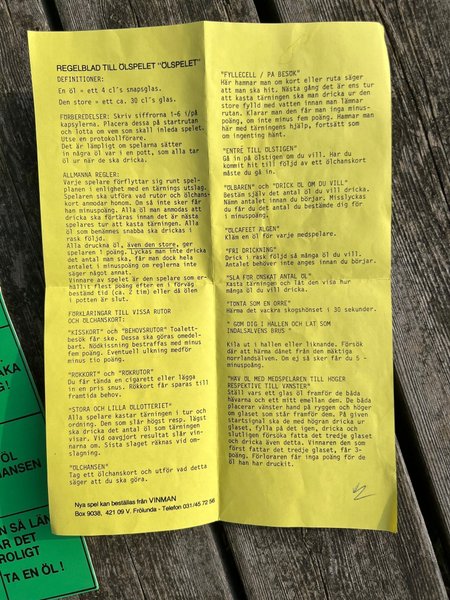 REGELBLAD TILL ÖLSPELET "ÖLSPELET"
DEFINITIONER:
En öl = ett 4 cl's snapsglas.
Den store = ett ca. 30 cl's glas.
FÖRBEREDELSER: Skriv siffrorna 1-6 i/på
kapsylerna. Placera dessa på startrutan
och lotta om vem som skall inleda spelet.
Utse en protokollförare.
Det är lämpligt om spelarna sätter
in några öl var i en pott, som alla tar
öl ur när de ska dricka.
ALLMÄNNA REGLER:
Varje spelare förflyttar sig runt spel-
planen i enlighet med en tärnings utslag.
Spelaren ska utföra vad rutor och ölchans-
kort anmodar honom. Om så inte sker får
han minuspoäng. Alla öl man anmodas att
dricka ska förtäras innan det är nästa
spelares tur att kasta tärningen. Alla
öl som benämnes snabba ska drickas i
rask följd.
Alla druckna öl, även den store, ger
spelaren 1 poäng. Lyckas man inte dricka
det antal man ska, får man dock hela
antalet i minuspoäng om reglerna inte
säger något annat.
Vinnare av spelet är den spelare som er-
hållit flest poäng efter en i förväg
bestämd tid (ca. 2 tim) eller då ölen
i potten är slut.
FÖRKLARINGAR TILL VISSA RUTOR
OCH ÖLCHANSKORT:
"KISSKORT" och "BEHOVSRUTOR" Toalett-
besök får ske. Dessa ska göras omedel-
bart. Nödkissning bestraffas med minus
fem poäng. Eventuell ulkning medför
minus tio poäng.
"RÖKKORT" och "RÖKRUTOR"
Du får tända en cigarett eller lägga
in en pris snus. Rökkort får sparas till
framtida behov.
"STORA OCH LILLA ÖLLOTTERIET"
Alla spelare kastar tärningen i tur och
ordning. Den som slår högst resp. lägst
ska dricka det antal öl som tärningen
visar. Vid oavgjort resultat slår vin-
narna om. Sista slaget räknas vid om-
slagning.
"ÖLCHANSEN"
Tag ett ölchanskort och utför vad detta
säger att du ska göra.
Nya spel kan beställas från VINMAN
Box 9038, 421 09 V. Frölunda - Telefon 031/45 72 56
"FYLLECELL / PÅ BESÖK"
Här hamnar man om kort eller ruta säger
att man ska hit. Nästa gång det är ens tur
att kasta tärningen ska man dricka ur den
store fylld med vatten innan man lämnar
rutan. Klarar man den får man inga minus-
poäng, om inte minus fem poäng. Hamnar man
här med tärningens hjälp, fortsätt som
om ingenting hänt.
"ENTRE TILL ÖLSTIGEN"
Gå in på ölstigen om du vill. Har du
kommit hit till följd av ett ölchanskort
måste du gå in.
"ÖLBAREN" och "DRICK ÖL OM DU VILL"
Bestäm själv det antal du vill dricka.
Nämn antalet innan du börjar. Misslyckas
du får du det antal du bestämde dig för
i minuspoäng.
"ÖLCAFEET ÄLGEN"
Kläm en öl för varje medspelare.
"FRI DRICKNING"
Drick i rask följd så många öl du vill.
Antalet behöver inte anges innan du börjar.
"SLÅ FÖR ÖNSKAT ANTAL ÖL"
Kasta tärningen och låt den visa hur
många öl du vill dricka.
"TONTA SOM EN ORRE"
Härma det vackra skogshönset i 30 sekunder.
" GÖM DIG I HALLEN OCH LÅT SOM
INDALSÄLVENS BRUS "
Kila ut i hallen eller liknande. Försök
där att härma dånet från den mäktiga
norrlandsälven. Om ej så sker får du 5 -
minuspoäng.
"HÄV ÖL MED MEDSPELAREN TILL HÖGER
RESPEKTIVE TILL VÄNSTER"
Ställ vars ett glas öl framför de båda
hävarna och ett mitt emellan dem. De båda
placerar vänster hand på ryggen och höger
om glaset som står framför dem. På given
startsignal ska de med högran dricka ur
glaset, fylla på det igen, dricka och
slutligen försöka fatta det tredje glaset
och dricka även detta. Vinnaren den som
först fattar det tredje glaset, får 3-
poäng. Förloraren får inga poäng för de
öl han har druckit.
ÖL
HANSEN
N SÅ LÄN
AR DET
ROLIGT
TA EN ÖL !